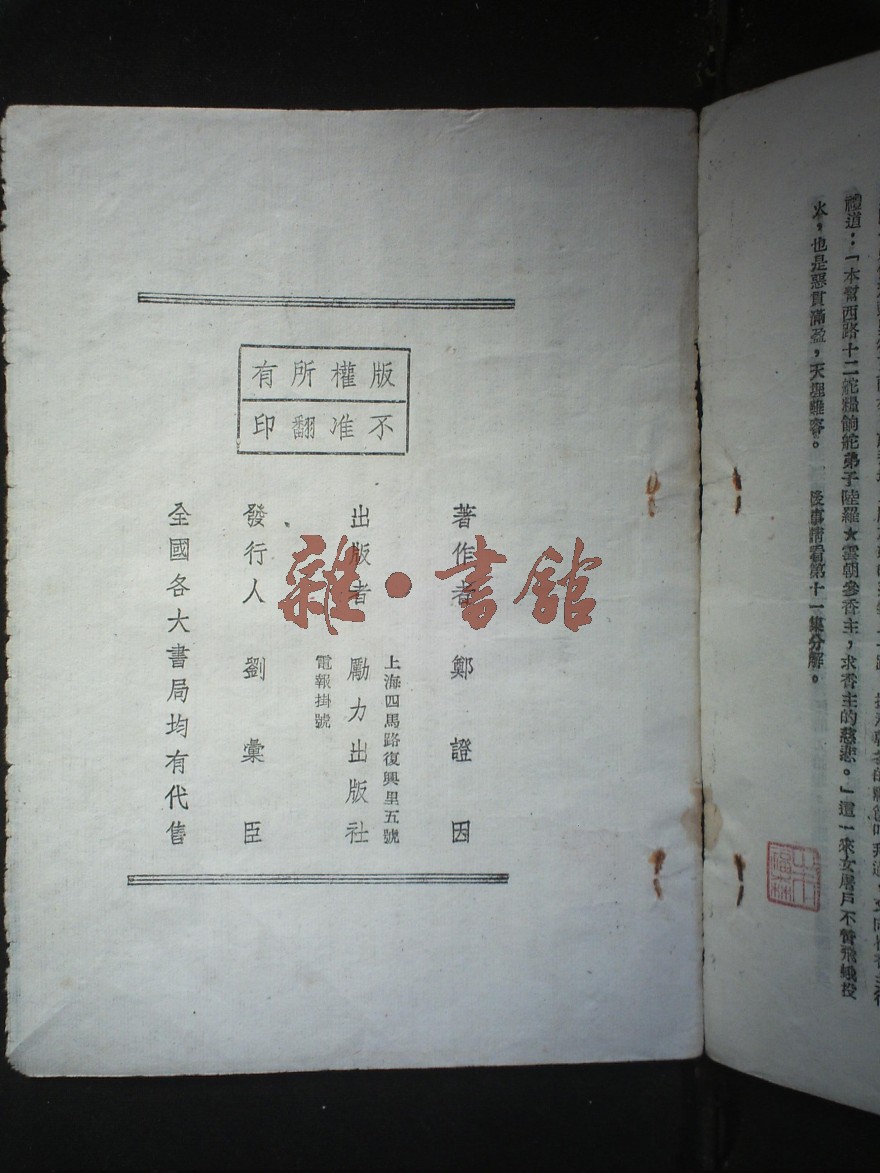 禮道：「本幫西路十二舵糧餉舵弟子陸羅★雲朝參香主，求香主的慈悲。」這一來女屠戶不啻飛蛾投
火，也是惡貫滿盈，天理難容。 後事請看第十一集分解。
版權所有
不准翻印
著作者 鄭證因
出版者 勵力出版社
上海四馬路復興里五號
電報掛號
發行人 劉彙臣
全國各大書局均有代售
雜·書館